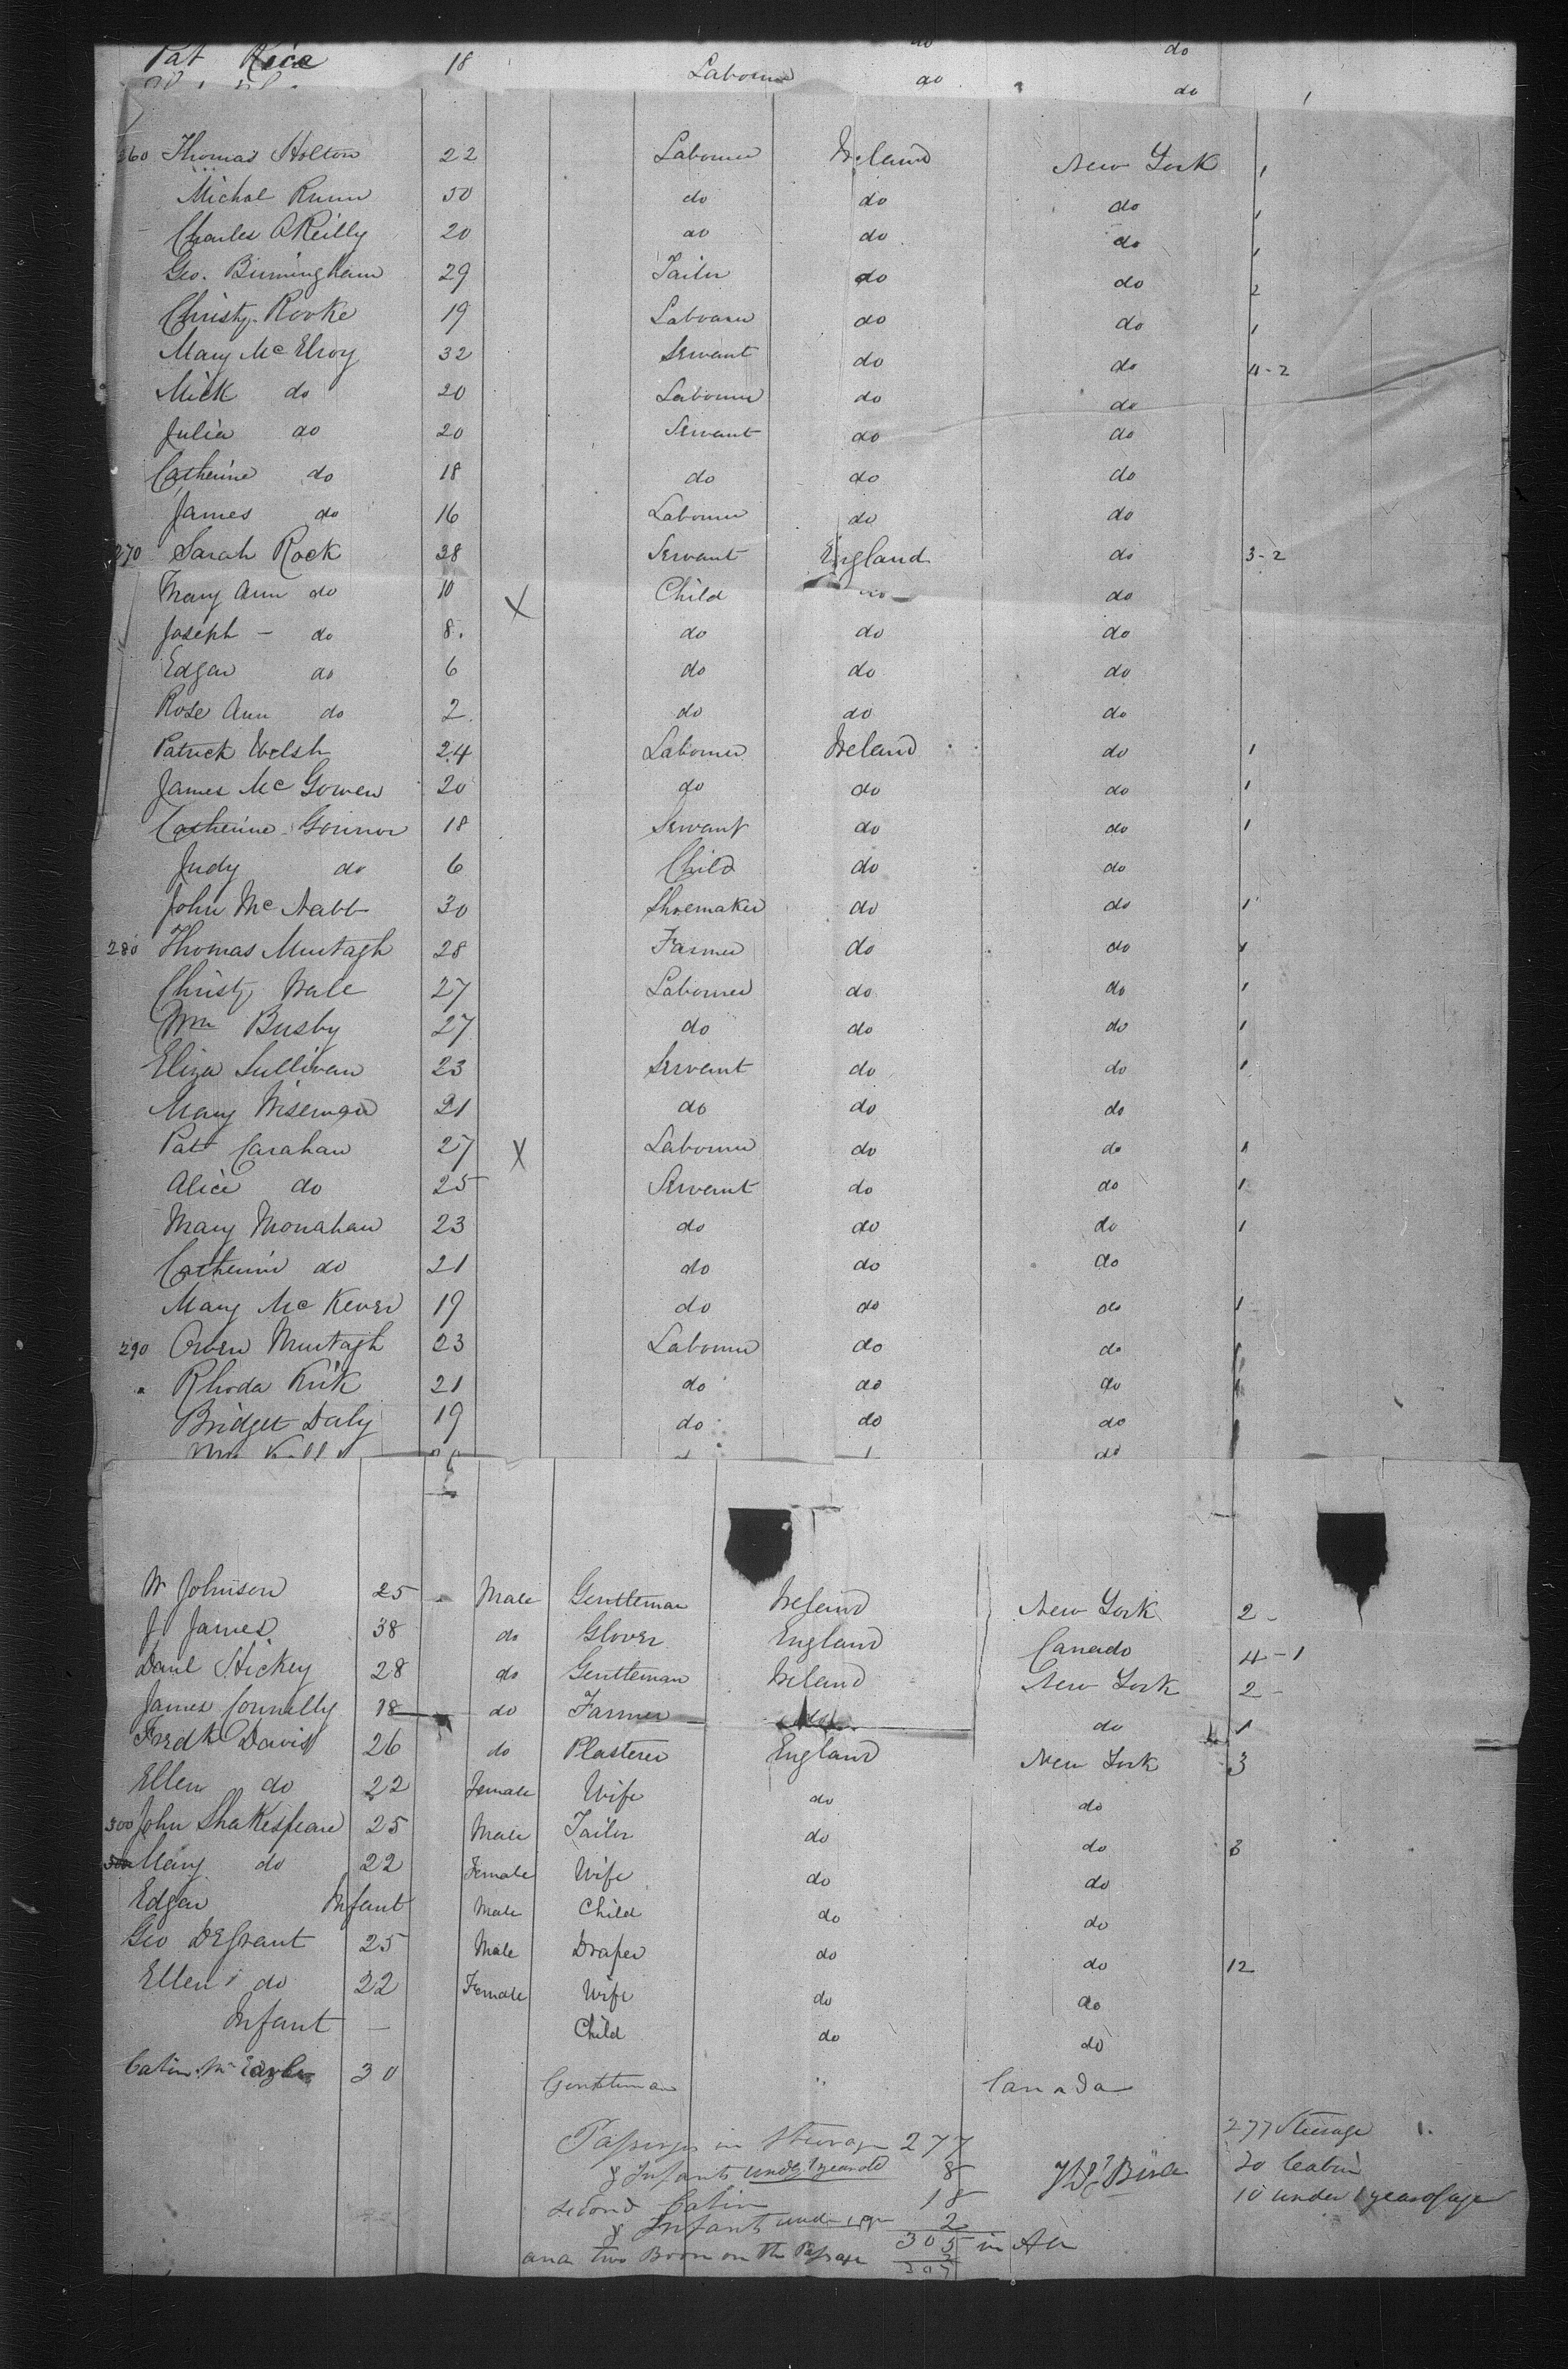 do do
Pat Rice 18 Labourer do do
1
260 Thomas Holton 22 Labourer Ireland New York 1
Michal 50 do do do 1
Charles OReilly 20 do do do 1
Geo. Birmingham 29 Tailor do do 2
Christy Rorke 19 Labourer do do 1
Mary McElroy 32 Servant do do 4-2
Mick do 20 Labourer do do
Julia do 20 Servant do do
Catherine do 18 do do do
James do 16 Labourer do do
270 Sarah Rock 38 Servant England do 3-2
Mary Ann do 10 X Child do do
Joseph - do 8. do do do
Edgar do 6 do do do
Rose Ann do 2 do do do
Patrick Welsh 24 Labourer Ireland do 1
James McGowen 20 do do do 1
Catherine Gonnor 18 Servant do do 1
Judy do 6 Child do do
John McNabb 30 Shoemaker do do 1
280 Thomas Murtagh 28 Farmer do do 1
Christy 27 Labourer do do 1
Wm Busby 27 do do do 1
Eliza Sullivan 23 Servant do do 1
Mary Wiseman 21 do do do
Pat Carahan 27 X Labourer do do 1
Alice do 25 Servant do do 1
Mary Monahan 23 do do do 1
Catherine do 21 do do do
Mary McKever 19 do do do 1
290 Owen Murtagh 23 Labourer do do 1
Rhoda Kirk 21 do do do 1
Bridget Daly 19 do do do 1
do
W Johnson 25 Male Gentleman Ireland New York 2-
J James 38 do Glover England Canada 4-1
Danl Hickey 28 do Gentleman Ireland New York 2-
James Connelly 18 do Farmer do do 1
Fredk Davis 26 do Plasterer England New York 3
Ellen do 22 Female Wife do do
300 John Shakespeare 25 Male Tailor do do 3
Mary do 22 Female Wife do do
Edgar Infant Male Child do do
Geo DeGrant 25 Male Draper do do 12
Ellen do 22 Female Wife do do
Infant - Child do do
Cabin Mr 30 Gentleman " Canada
Passengers in Steerage 277 277 Steerage 1.
& Infants under 1 year old 8 20 Cabin
Second Cabin 18 10 under 1 year of age
& Infants under 1 2
305 in All
and two Born on the Passage 2